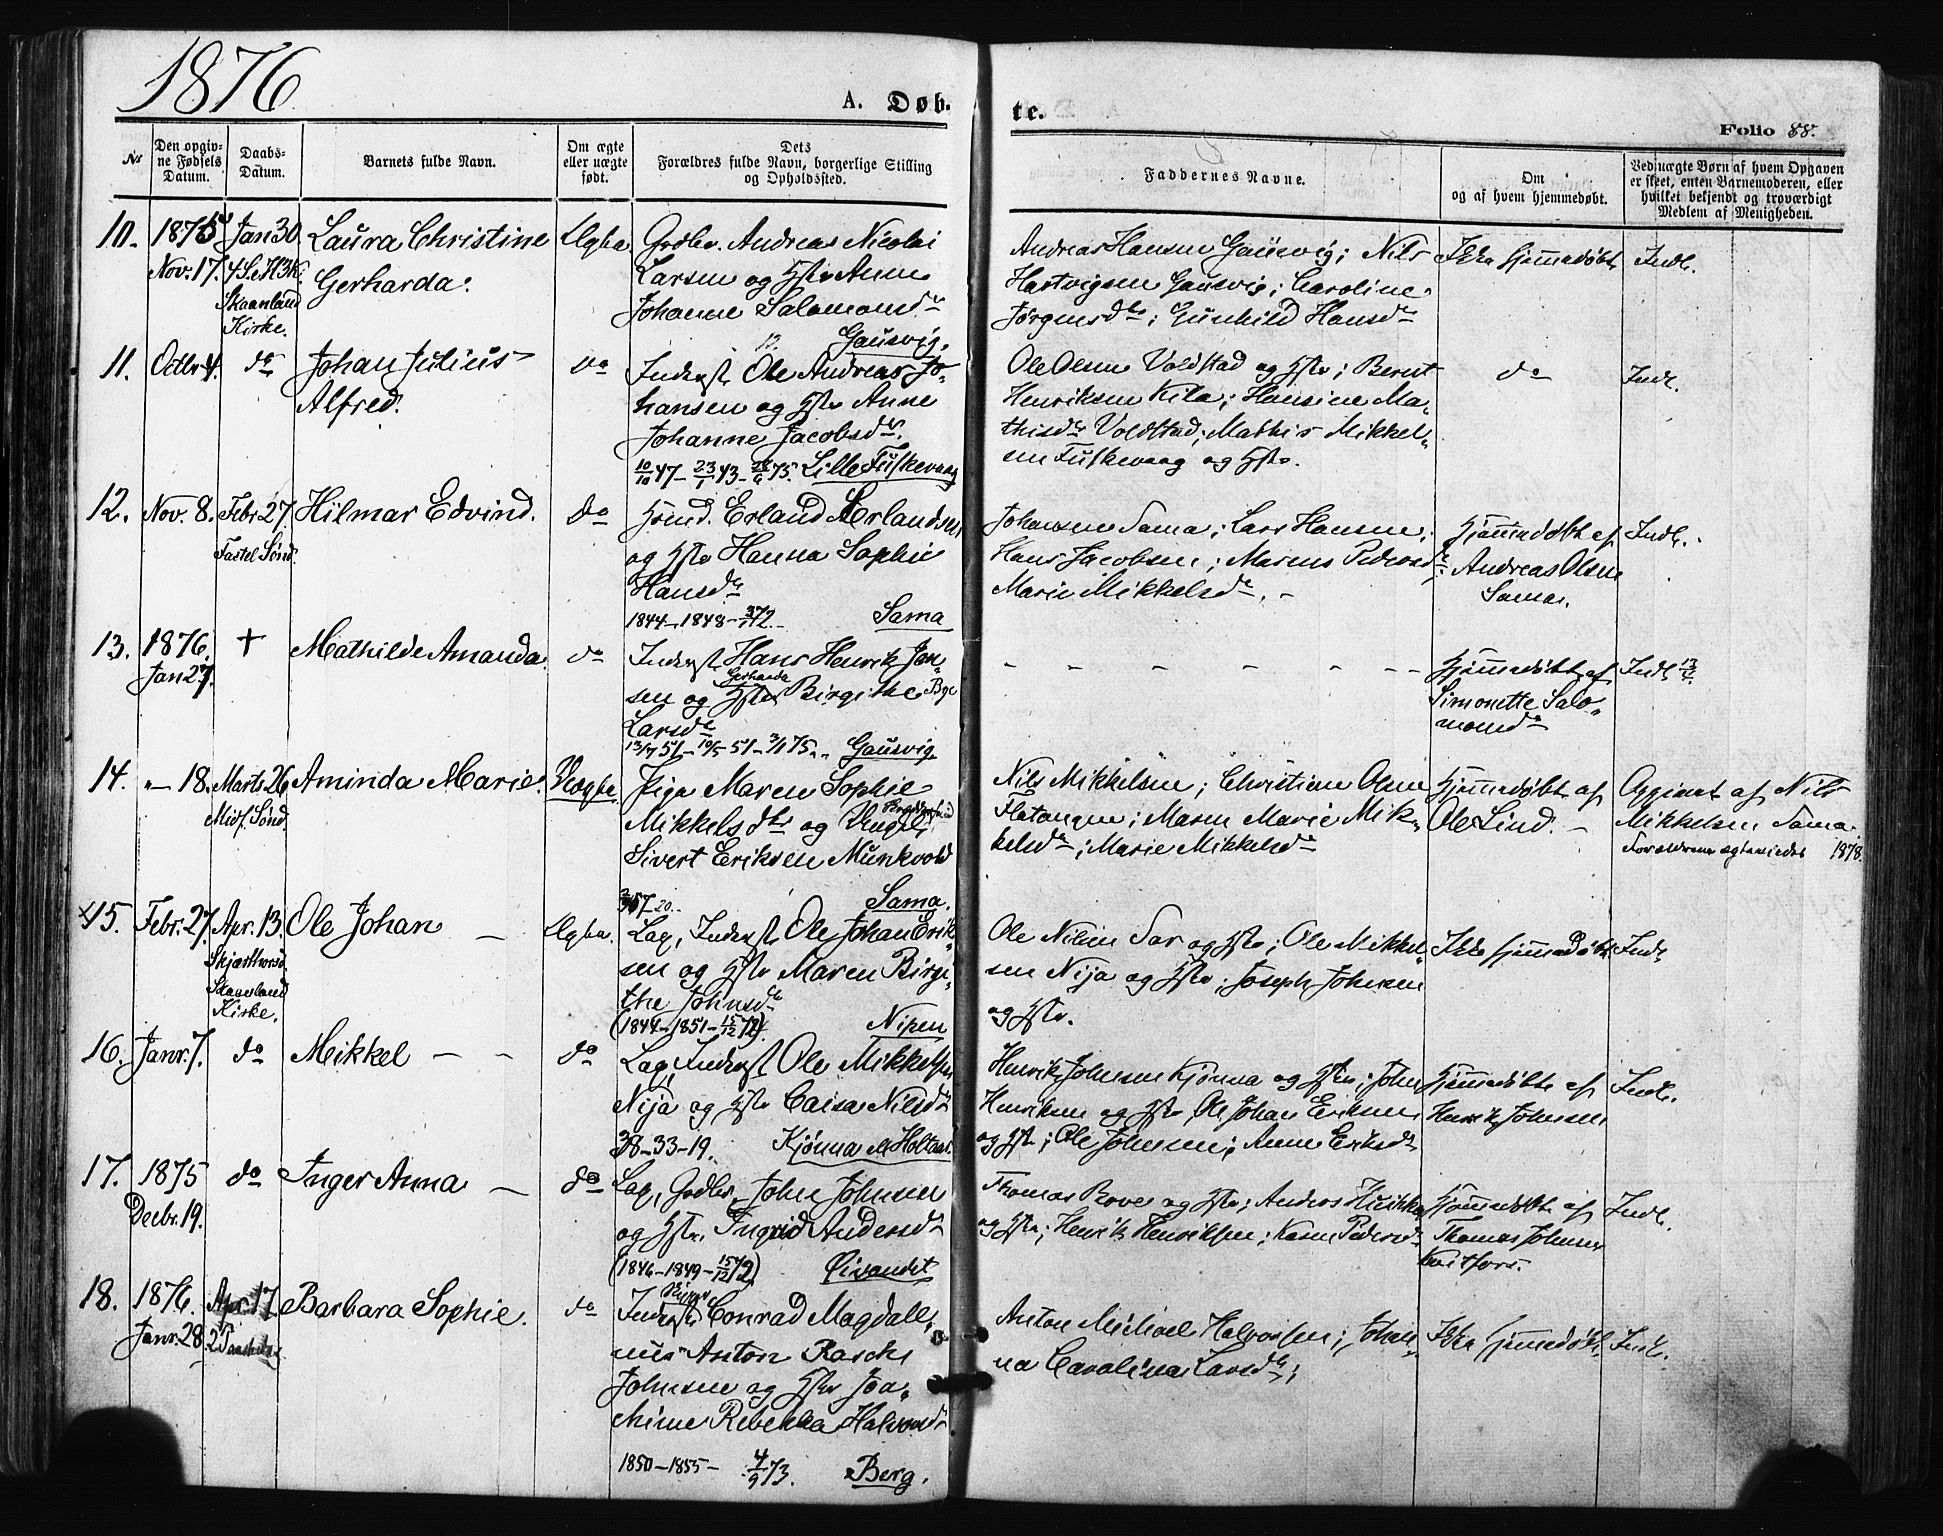 1876
A. Døb. te.
Folio 88.
No
Den opgivne Fødsels Datum.
Daabs-Datum.
Barnets fulde Navn.
Om ægte eller uægte født.
Dets Forældres fulde Navn, borgerlige Stilling og Opholdssted.
Faddernes Navne.
Om og af hvem hjemmedøbt.
Ved uægte Børn af hvem Opgaven er skeet, enten Barnemoderen, eller hvilket bekjendt og troværdigt Medlem af Menigheden.
10. 1875 Nov. 17. Jan 30. 4 S. e. H3K. Skaanland Kirke.
Laura Christine
Gerharda.
Ægte
Grdbr. Andreas Nicolai
Larsen og Hstr Anne
Johanne Salamonsdr
Gausvig.
Andreas Hansen Gausvig; Nils
Hartvigsen Gausvig; Caroline
Jørgensdtr; Gunhild Hansdr
Ikke hjemmedøbt
Indl.
11. Octbr 4. do
Johan Julius
Alfred.
do
Inderst Ole Andreas Jo-
hansen og Hstr Anne
Johanne Jacobsdr.
10/10 47 - 23/1 43 - 75. Lille Fuskevaag
Ole Olsen Voldstad og Hstr; Bernt
Henriksen Kila; Hansine Ma-
thisdr Voldstad; Mathis Mikkel-
sen Fuskevaag og Hstr.
do
Indl.
12. Nov. 8. Febr 27. Fastel. Sønd.
Hilmar Edvind.
do
Erland Erlandsen
og Hstr Hanna Sophie
Hansdr
1844 - 1848 - 72. Sama
Johansen Sama; Lars Hansen;
Hans Jacobsen; Maren Pedersdr;
Marie Mikkelsdr. -
Hjemmedøbt af
Andreas Olsen
Sama.
Indl.
13. 1876. Jan 27. †
Mathilde Amanda.
do
Inderst Hans Henrik Jen-
sen og Hstr Gerharda Birgithe
Larsdr
51 - 19/5 51 - 3/1 75. Gausvig.
- - - - - - -
Hjemmedøbt af
Simonette Salo-
monsdr
Indl
14. " - 18. Marts 26. Midf. Sønd.
Aminda Marie.
Uægte
Pige Maren Sophie
Mikkelsdtr og Ungk.
Sivert Eriksen Munkvold
20. Sama.
Nils Mikkelsen; Christian Olsen
Flatangen; Maren Marie Mik-
kelsdr; Marie Mikkelsdr
Hjemmedøbt af
Ole Lind. -
Opgivet af Nils
Mikkelsen Sama.
Forældrene ægteviedes 1878.
15. Febr. 27. Apr. 13. Skjærthorsd. Skaanland Kirke.
Ole Johan -
Ægte.
Lap, Inderst Ole Johan Erik-
sen og Hstr Maren Birgi-
the Johnsdr
(1844 - 1851 - 15/12 72). Nipen
Ole Nilsen Sar og Hstr; Ole Mikkel-
sen Nija og Hstr; Joseph Johnsen
og Hstr.
Ikke hjemmedøbt
Indl
16. Janr. 7. do
Mikkel - -
do
Lap, Inderst Ole Mikkelsen
Nija og Hstr Caisa Nilsdr
38 - 33 - 19. Kjønna m Holtaas.
Henrik Johnsen Kjønna og Hstr; John
Henriksen og Hstr, Ole Johan Eriksen
og Hstr; Ole Johnsen; Anne Eriksdr
Hjemmedøbt af
Henrik Johnsen
Indl.
17. 1875 Decbr. 19. do
Inger Anna -
do
Lap, Grdbr. John Johnsen
og Hstr. Ingrid Andersdr
(1846 - 1849 - 15/12 72) Øivandet
Thomas Rover og Hstr; Anders
og Hstr; Henrik Henriksen; Karen Pedersdr
Hjemmedøbt af
Thomas Johnsen
Kvitfors.
Indl.
18. 1876. Janr. 28. Apr. 17. 2 Paaskedag
Barbara Sophie.
do
Inderst Conrad Magdall-
nus Anton Rasch
Johnsen og Hstr Joa-
chime Rebekka Halvorsdr
1850 - 1855 - 4/9 73. Berg.
Anton Michael Halvorsen; Johan-
na Carolina Larsdtr;
Ikke hjemmedøbt.
Indl.